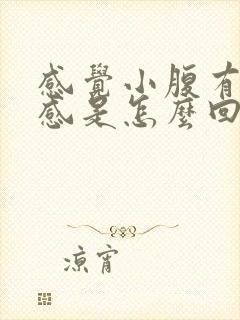 感覺小腹有
感是怎麼回
涼宵